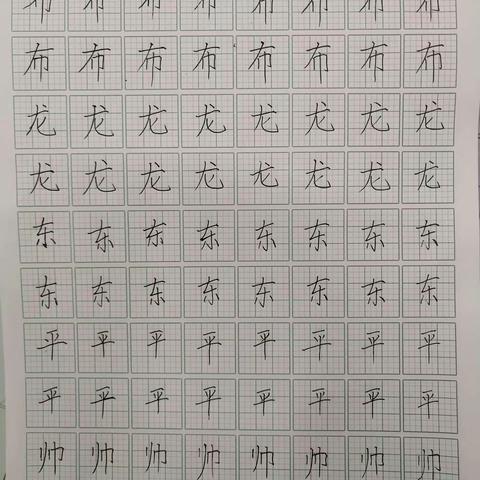 布布布布布布布布
布布布布布布布布
龙龙龙龙龙龙龙龙
龙龙龙龙龙龙龙龙
东东东东东东东东
东东东东东东东东
平平平平平平平平
平平平平平平平平
帅帅帅帅帅帅帅帅